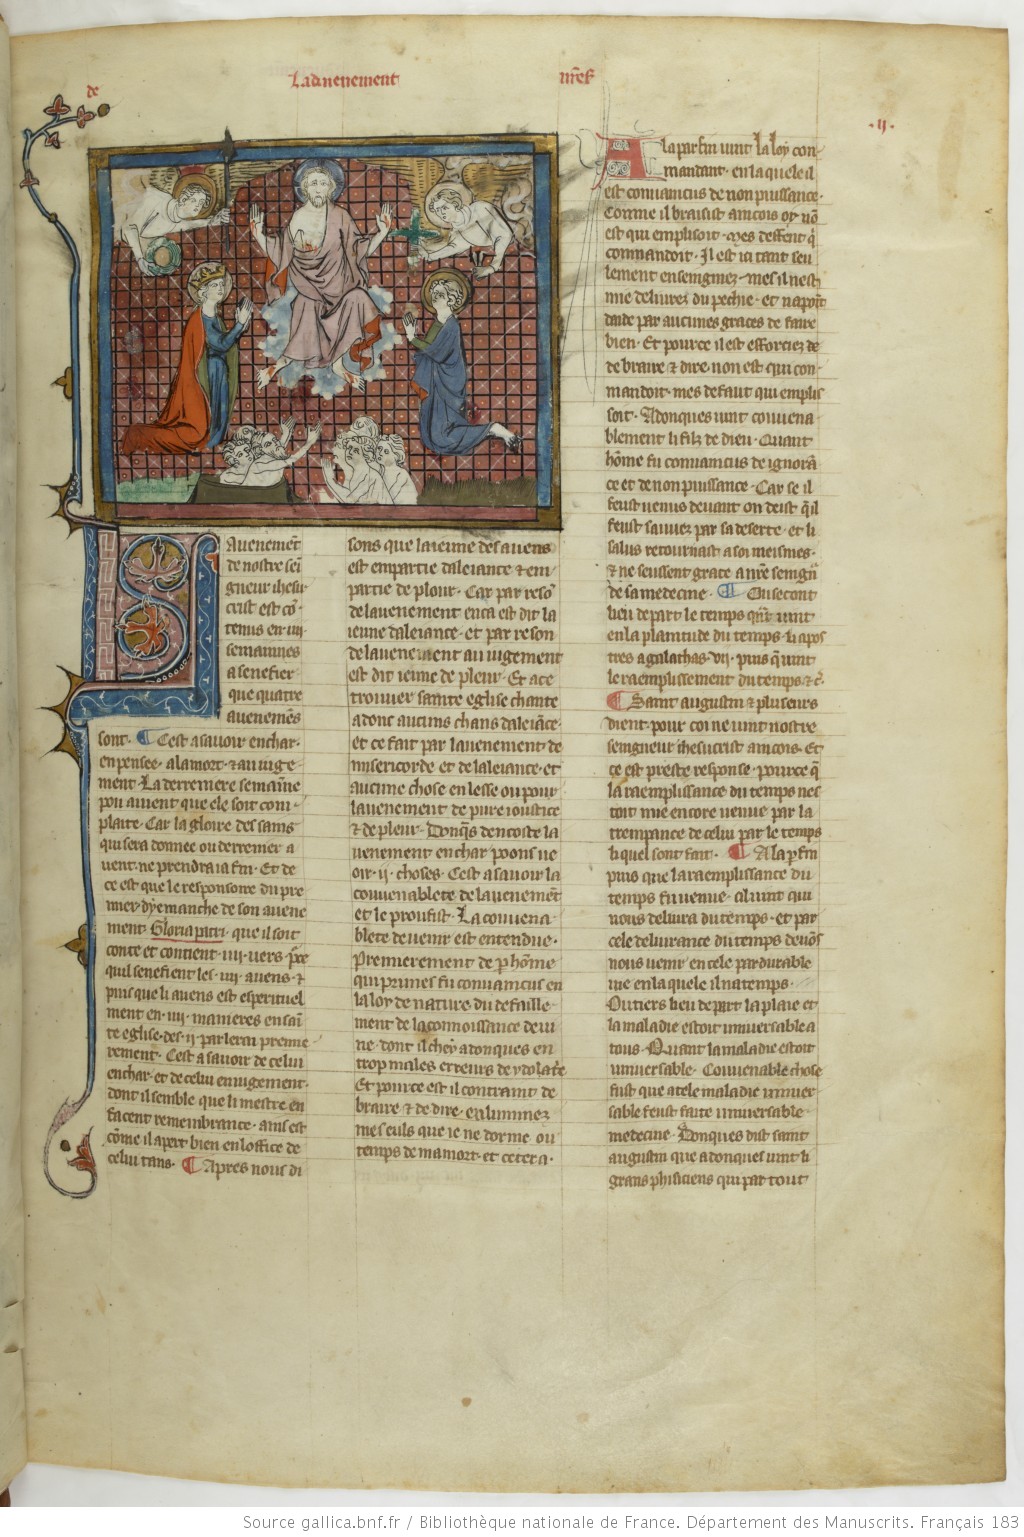 de
Ladvenement
nr̄eſ
·ij·
Lavenemēt
de nostre sei
gneur ihesu
crist est cō
tenus en·iiij·
semainnes
a senefier
que quatre
avenemēs
sont· ¶ Cest a savoir en char·
en pensee· a la mort· ⁊ au iuge
ment· La derreniere semaīne
pou avient que ele soit com
plaite· Car la gloire des sains
qui sera donnee ou derrenier a
vent· ne prendra ia fin· Et de
ce est que le responsoire du pre
mier dyemanche de son avene
ment· Gloria patri· que il soit
conte et contient·iiij·vers· pͬce
quil senefient les·iiij·avens· ⁊
puis que li avens est esperituel
ment en·iiij·manieres en sain
te eglise· des·ij·parlerai premie
rement· Cest a savoir de celui
en char· et de celui en iugement·
dont il semble que li mestre en
facent remembrance· ainsi est
cōme il apert bien en loffice de
celui tans· ¶ Apres nous di
sons que la ieune des avens
est em partie da leiance ⁊ em
partie de plour· Car par resō
de lavenement en ca est dit la
ieune da leiance· et par reson
de lavenement au iugement
est dit ieune de pleur· Et a ce
trouver sainte eglise chante
adonc aucuns chans da leiāce·
et ce fait par lavenement de
misericorde et de la leiance· et
aucune chose en lesse ou pour
lavenement de pure ioustice
⁊ de pleur· Donq̄s dencoste la
venement en char poons ve
oir·ij·choses· Cest a savoir la
couvenablete de lavenemēt
et le proufist· La couvena
blete de venir est entendue·
Premierement de p̱ hōme
qui primes fu convaincus en
la loy de nature du defaille
ment de la connoissance devi
ne· dont il chey adonques en
trop males erreurs de ydolatͬe
Et pour ce est il contraint de
braire ⁊ de dire· enluminez
mes euls que ie ne dorme ou
temps de ma mort· et cetera·
A la par fin vint la loy con
mandant· en la quele il
est convaincus de non puissance·
Comme il braisist aincois or vō
est qui emplisoit· mes deffent q̄
commandoit· Il est ici tant seu
lement enseingniez· mes il nest
mie delivrez du pechie· et na poīt
daide par aucunes graces de faire
bien· Et pour ce il est efforciez de
de braire ⁊ dire· non est qui con
mandoit· mes defaut qui emplis
soit· Adonques vint convena
blement li filz de dieu· Quant
hōme fu convaincus de ignorā
ce et de non puissance· Car se il
feust venus devant on deist q̄ il
feust sauvez par sa deserte· et li
salus retournast a soi meismes·
⁊ ne seussent grace a nr̄e seingn̄
de sa medecine· ¶ Ou secont
lieu de part le temps qu̾t vint
en la planitude du temps· li apos
tres a galathas·vij·puis q̄ vint
le raemplissement du temps ⁊ c̄·
¶ Saint augustin ⁊ pluiseurs
dient· pour coi ne vint nostre
seingneur ihesucrist aincois· Et
ce est preste response· pour ce q̄
la raemplissance du temps nes
toit mie encore venue par la
trempance de celui par le temps
li quel sont fait· ¶ A la p̱ fin
puis que la raemplissance du
temps fu venue· cil vint qui
nous delivra du temps· et par
cele delivrance du temps devōs
nous venir en cele pardurable
vie en la quele il na temps·
Ou tiers lieu de part la plaie et
la maladie estoit universable a
tous· Quant la maladie estoit
universable· Convenable chose
fust que a tele maladie univer
sable feust faite universable
medecine· Donques dist saint
augustin que adonques vint li
grans phisiciens qui par tout
Source gallica.bnf.fr / Bibliothèque nationale de France. Département des Manuscrits. Français 183